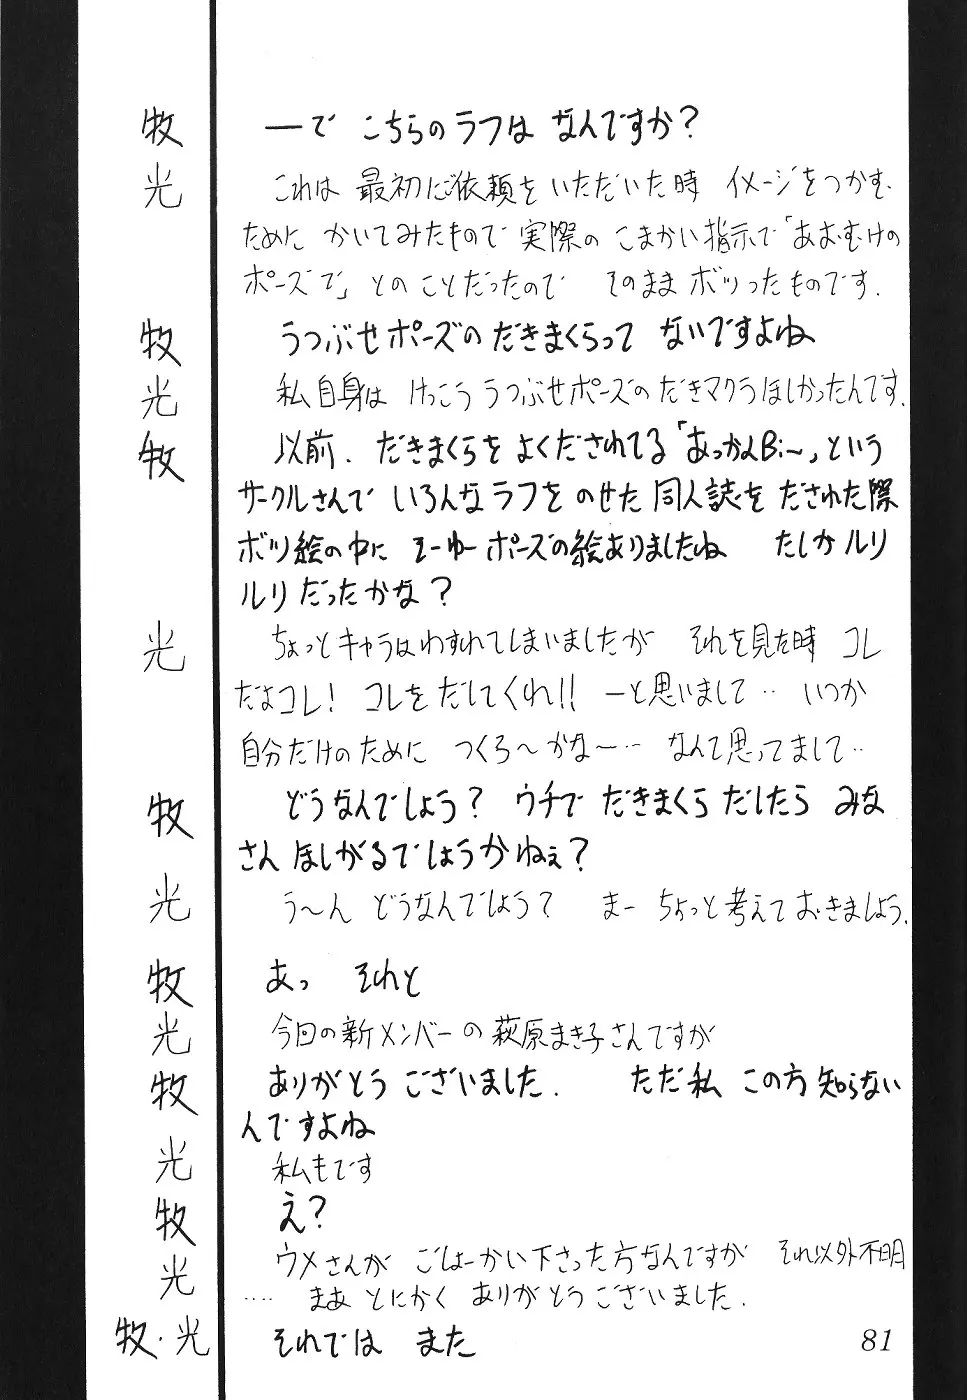 牧 ―で こちらのラフは なんですか？
光 これは 最初にご依頼をいただいた時 イメージをつかむ
ために かいてみたもので 実際の こまかい指示で「あおむけの
ポーズで」とのことだったので そのまま ボツったものです.
牧 うつぶせポーズの だきまくらって ないですよね
光 私自身は けっこう うつぶせポーズの だきマクラほしかったんです.
牧 以前. だきまくらを よくだされてる「あっかんBi〜」という
サークルさんで いろんなラフを のせた 同人誌を だされた際
ボツ絵の中に そーゆーポーズの絵ありましたね たしかルリ
ルリだったかな？
光 ちょっとキャラはわすれてしまいましたが それを見た時 コレ
だよコレ! コレをだしてくれ!! ―と思いまして‥ いつか
自分だけのために つくろ〜かな―‥ なんて思ってまして‥
牧 どうなんでしょう？ ウチで だきまくら だしたら みな
さん ほしがるでしょうかねぇ？
光 う〜ん どうなんでしょう？ まー ちょっと考えておきましょう.
牧 あっ それと
光 今回の新メンバーの萩原まき子さんですが
牧 ありがとう ございました. ただ私 この方 知らない
んですよね
光 私もです
牧 え？
光 ウメさんが ごしょーかい下さった方なんですが それ以外不明
‥‥ まあ とにかく ありがとうございました.
牧・光 それでは また
81